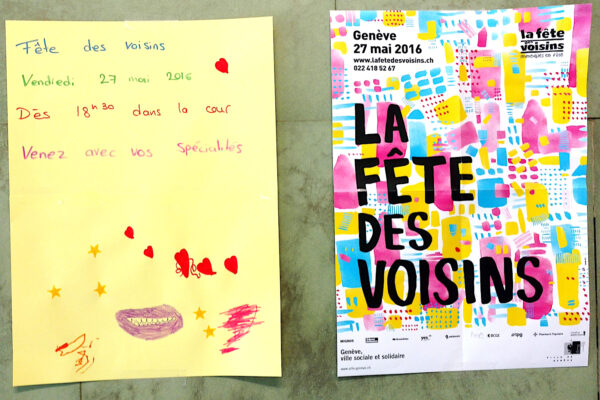 Fête des voisins
Vendredi 27 mai 2016
Dès 18h30 dans la cour
Venez avec vos spécialités
Genève
27 mai 2016
www.lafetedesvoisins.ch
022 418 52 67
la fête
des
voisins
LA
FÊTE
DES
VOISINS
MIGROS
Genève,
ville sociale et solidaire
www.ville-geneve.ch